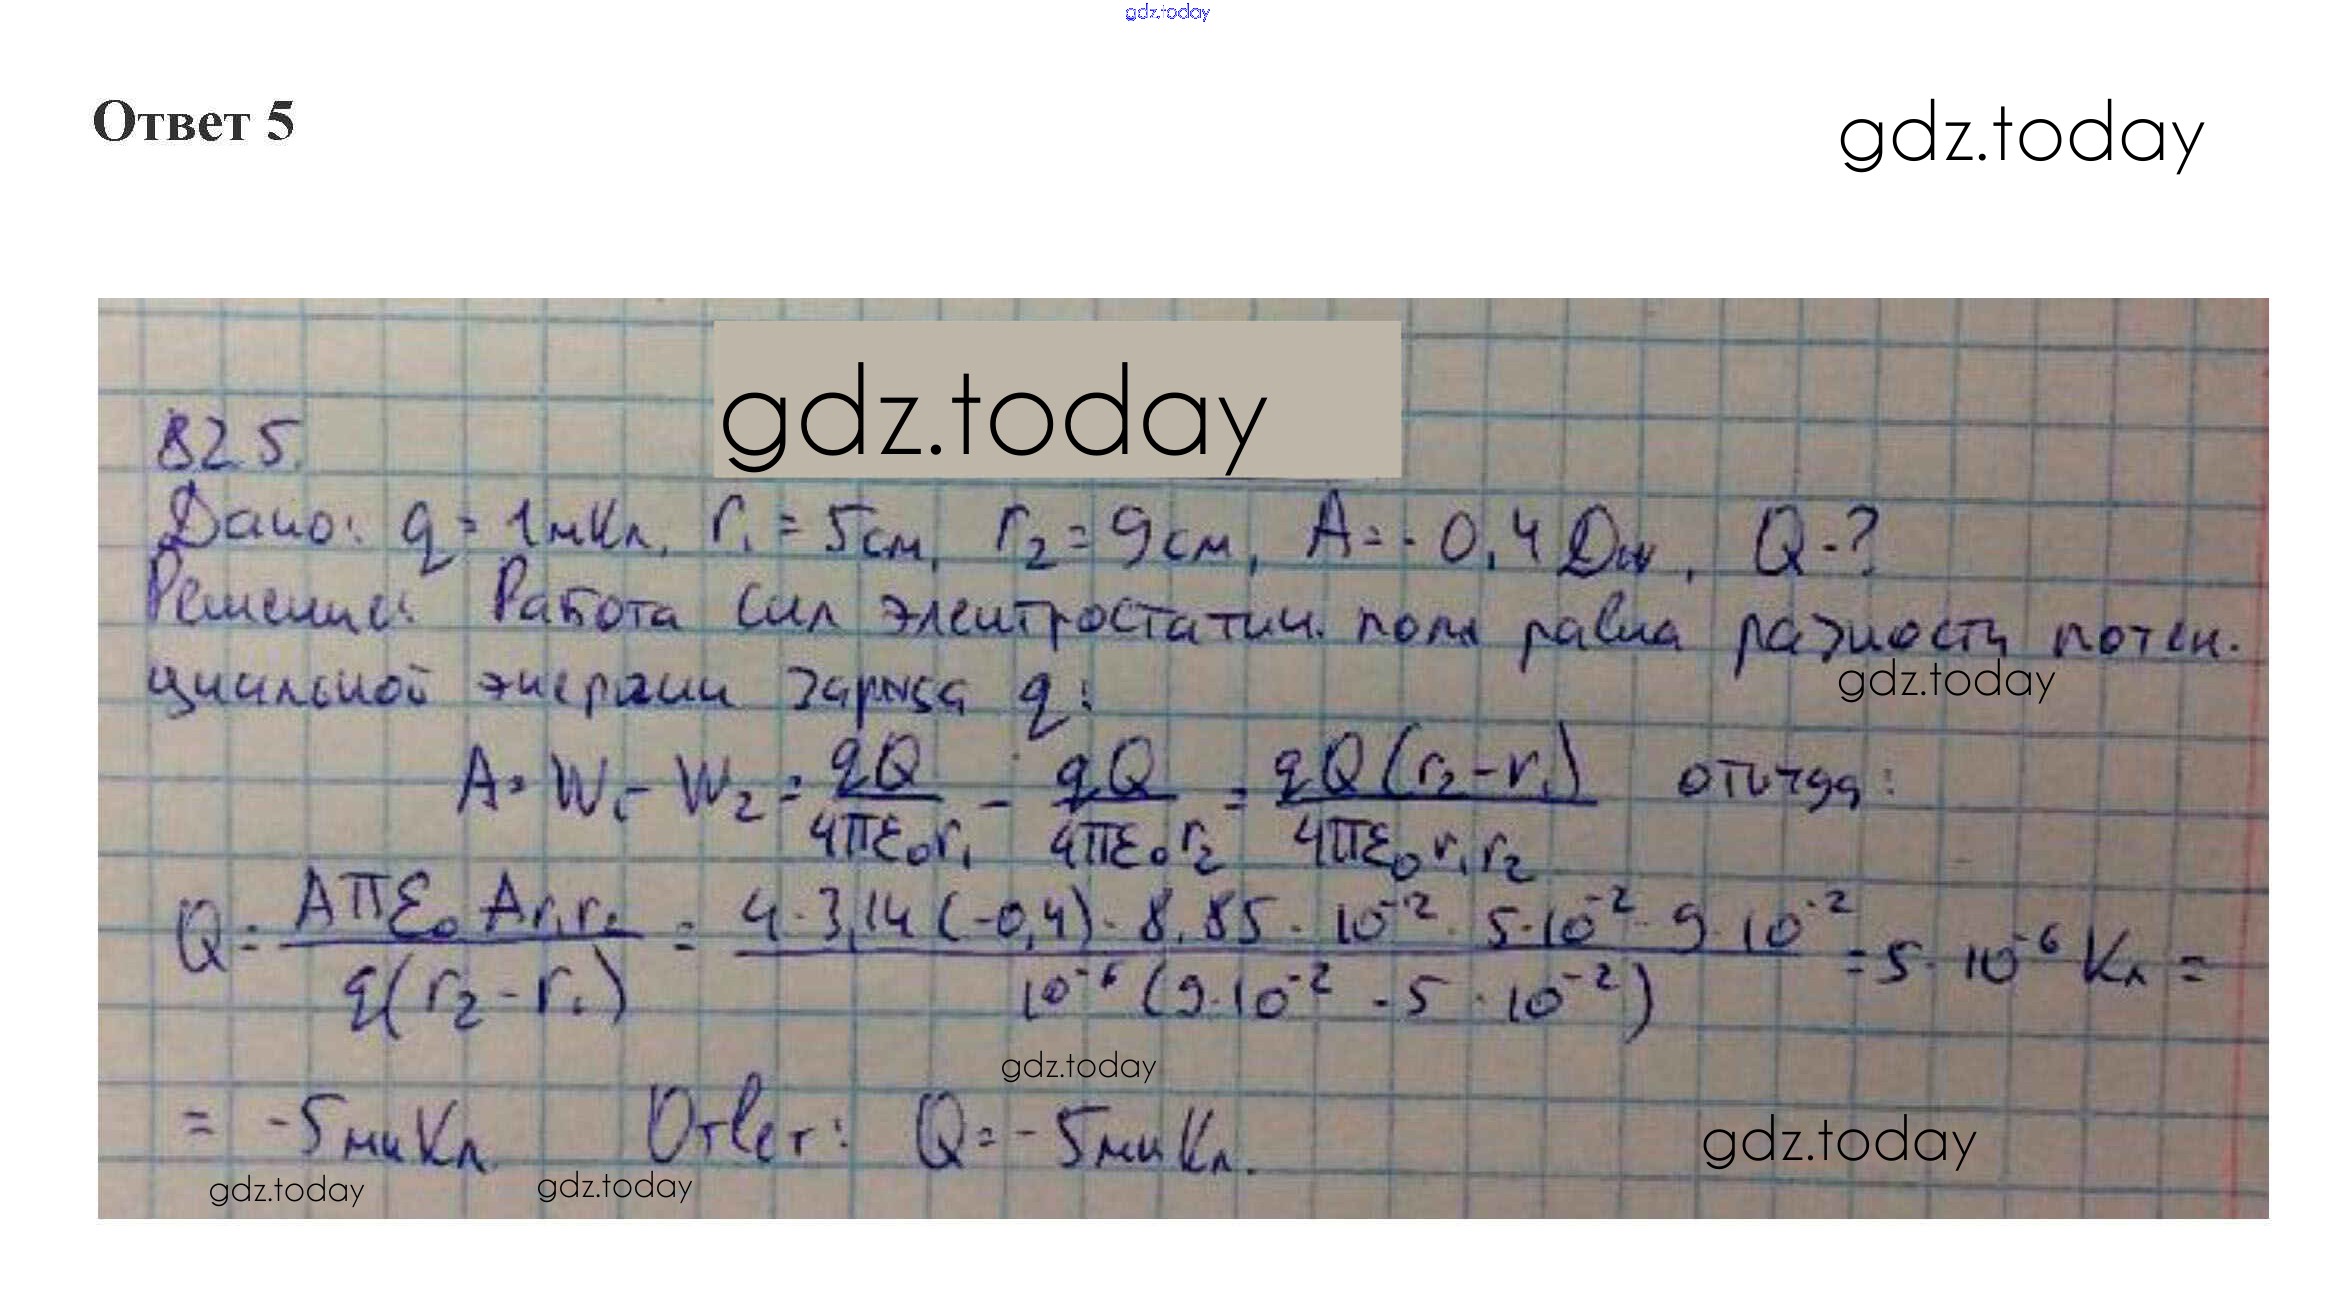 gdz.today
Ответ 5
gdz.today
gdz.today
В2.5.
Дано: q = 1мкКл, r₁ = 5см, r₂ = 9см, A = -0,4 Дж, Q - ?
Решение: Работа сил электростатич. поля равна разности потен.
gdz.today
циальной энергии заряда q:
A = W₁ - W₂ = qQ/4πε₀r₁ - qQ/4πε₀r₂ = qQ(r₂-r₁)/4πε₀r₁r₂ откуда:
Q = 4πε₀Ar₁r₂/q(r₂-r₁) = 4·3,14(-0,4)·8,85·10⁻¹²·5·10⁻²·9·10⁻²/10⁻⁶(9·10⁻²-5·10⁻²) = 5·10⁻⁶ Кл =
gdz.today
= -5мкКл Ответ: Q = -5мкКл.
gdz.today
gdz.today
gdz.today